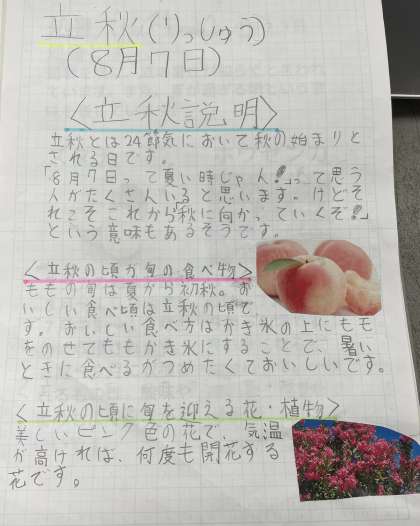 立秋(りっしゅう)
(8月7日)
<立秋説明>
立秋とは24節気において秋の始まりと
される日です。
「8月7日って夏い時じゃん!」って思う
人がたくさんいると思います。けどそ
れこそこれから「秋に向かっていくぞ!」
という意味もあるそうです。
<立秋の頃が旬の食べ物>
ももの旬は夏から初秋。お
いしい食べ頃は立秋の頃で
す。おいしい食べ方はかき氷の上にもも
をのせてももかき氷にすることで、暑い
ときに食べるがつめたくておいしいです。
<立秋の頃に旬を迎える花・植物>
美しいピンク色の花で、気温
が高ければ、何度も開花する
花です。